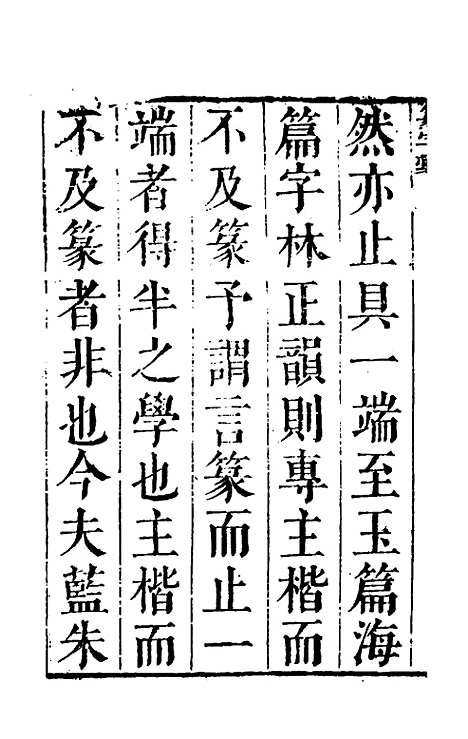 然亦止具一端至玉篇海
篇字林正韻則專主楷而
不及篆予謂言篆而止一
端者得半之學也主楷而
不及篆者非也今夫藍朱